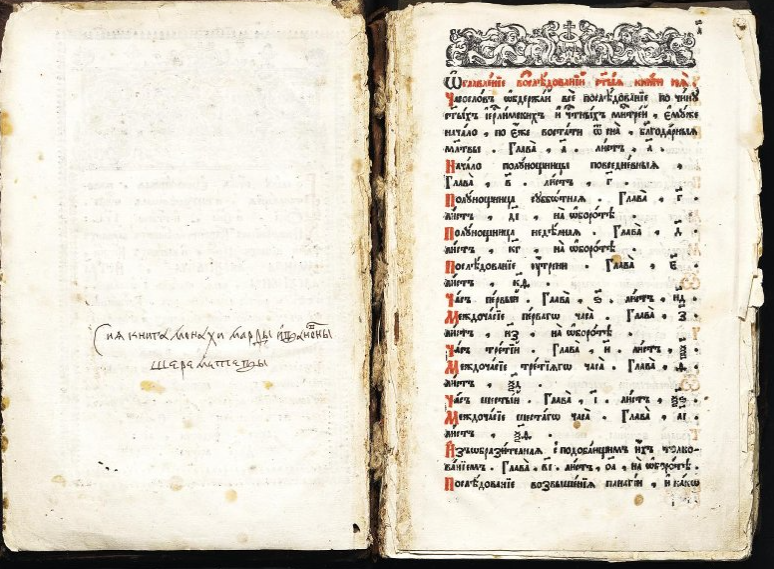 Сия книга монахи марѳы ивановны
шереметевы
Ѡглавле́нїе послѣ́дованїи ст҃ы́ѧ кни́ги сеѧ̀.
Часосло́въ ѡбдержа́й всѐ послѣ́дованїе по чи́нꙋ
ст҃ы́хъ і҆ерⷭ҇ли́мскихъ и҆ че́стны́хъ мн҃тре́й, є҆мꙋ́же
нача́ло, по є҆́же воста́ти ѿ сна̀, благода́рныѧ
мл҃твы. Глава̀, а҃. ли́стъ, а҃.
Нача́ло полꙋ́нощницы повседне́вныѧ,
Глава̀, в҃. ли́стъ, г҃.
Полꙋ́нощница сꙋббѡ́тнаѧ. Глава̀, г҃.
ли́стъ, дı҃, на ѡ҆боро́тѣ.
Полꙋ́нощница недѣ́лнаѧ. Глава̀, д҃.
ли́стъ, кг҃, на ѡ҆боро́тѣ.
Послѣ́дованїе ᲂу҆́трени. Глава̀, є҃.
ли́стъ, кд҃.
Ча́съ пе́рвый. Глава̀, ѕ҃. ли́стъ, нд҃.
Междоча́сїе пе́рвагѡ часа̀. Глава̀, з҃.
ли́стъ, нз҃, на ѡ҆боро́тѣ.
Ча́съ тре́тїй. Глава̀, и҃. ли́стъ,
Междоча́сїе тре́тїѧгѡ часа̀. Глава̀, ѳ҃.
ли́стъ, ѯд҃.
Ча́съ шесты́й. Глава̀, і҃. ли́стъ,
Междоча́сїе шеста́гѡ часа̀. Глава̀, аі҃.
ли́стъ, ѯѳ҃.
И҆з̾ѡбрази́телнаѧ с подоба́ющимъ и҆́хъ толко-
ва́нїемъ. Глава̀, ві҃. ли́стъ, ѻа҃, на ѡ҆боро́тѣ.
Послѣ́дованїе возвыше́нїѧ панагі́и, и҆ ка́кѡ